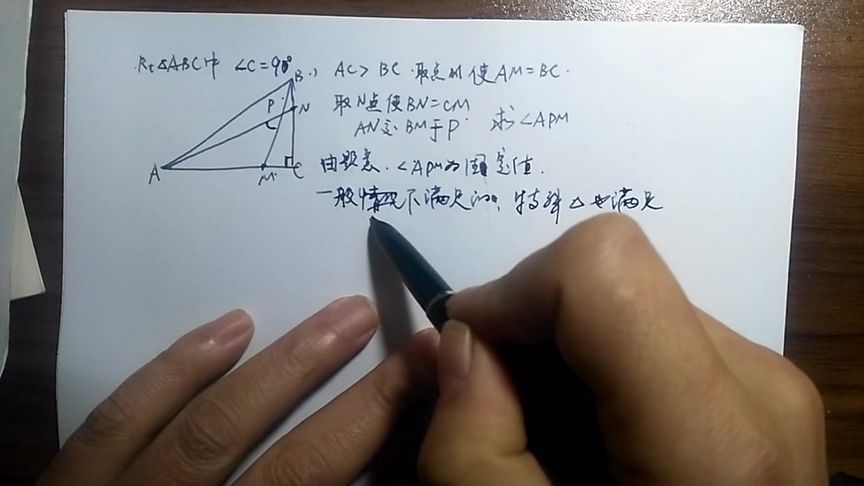 Rt△ABC中 ∠C=90°, AC>BC.取点M使AM=BC.
取N点使BN=CM
AN交BM于P. 求∠APM
B
P
N
A
M
C
由题意.∠APM为固定值.
一般情况下满足的,特殊△也满足